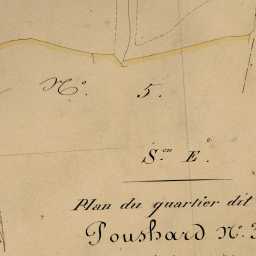 N.º 5.
S.on E.º
Plan du quartier dit
Poushard N.º